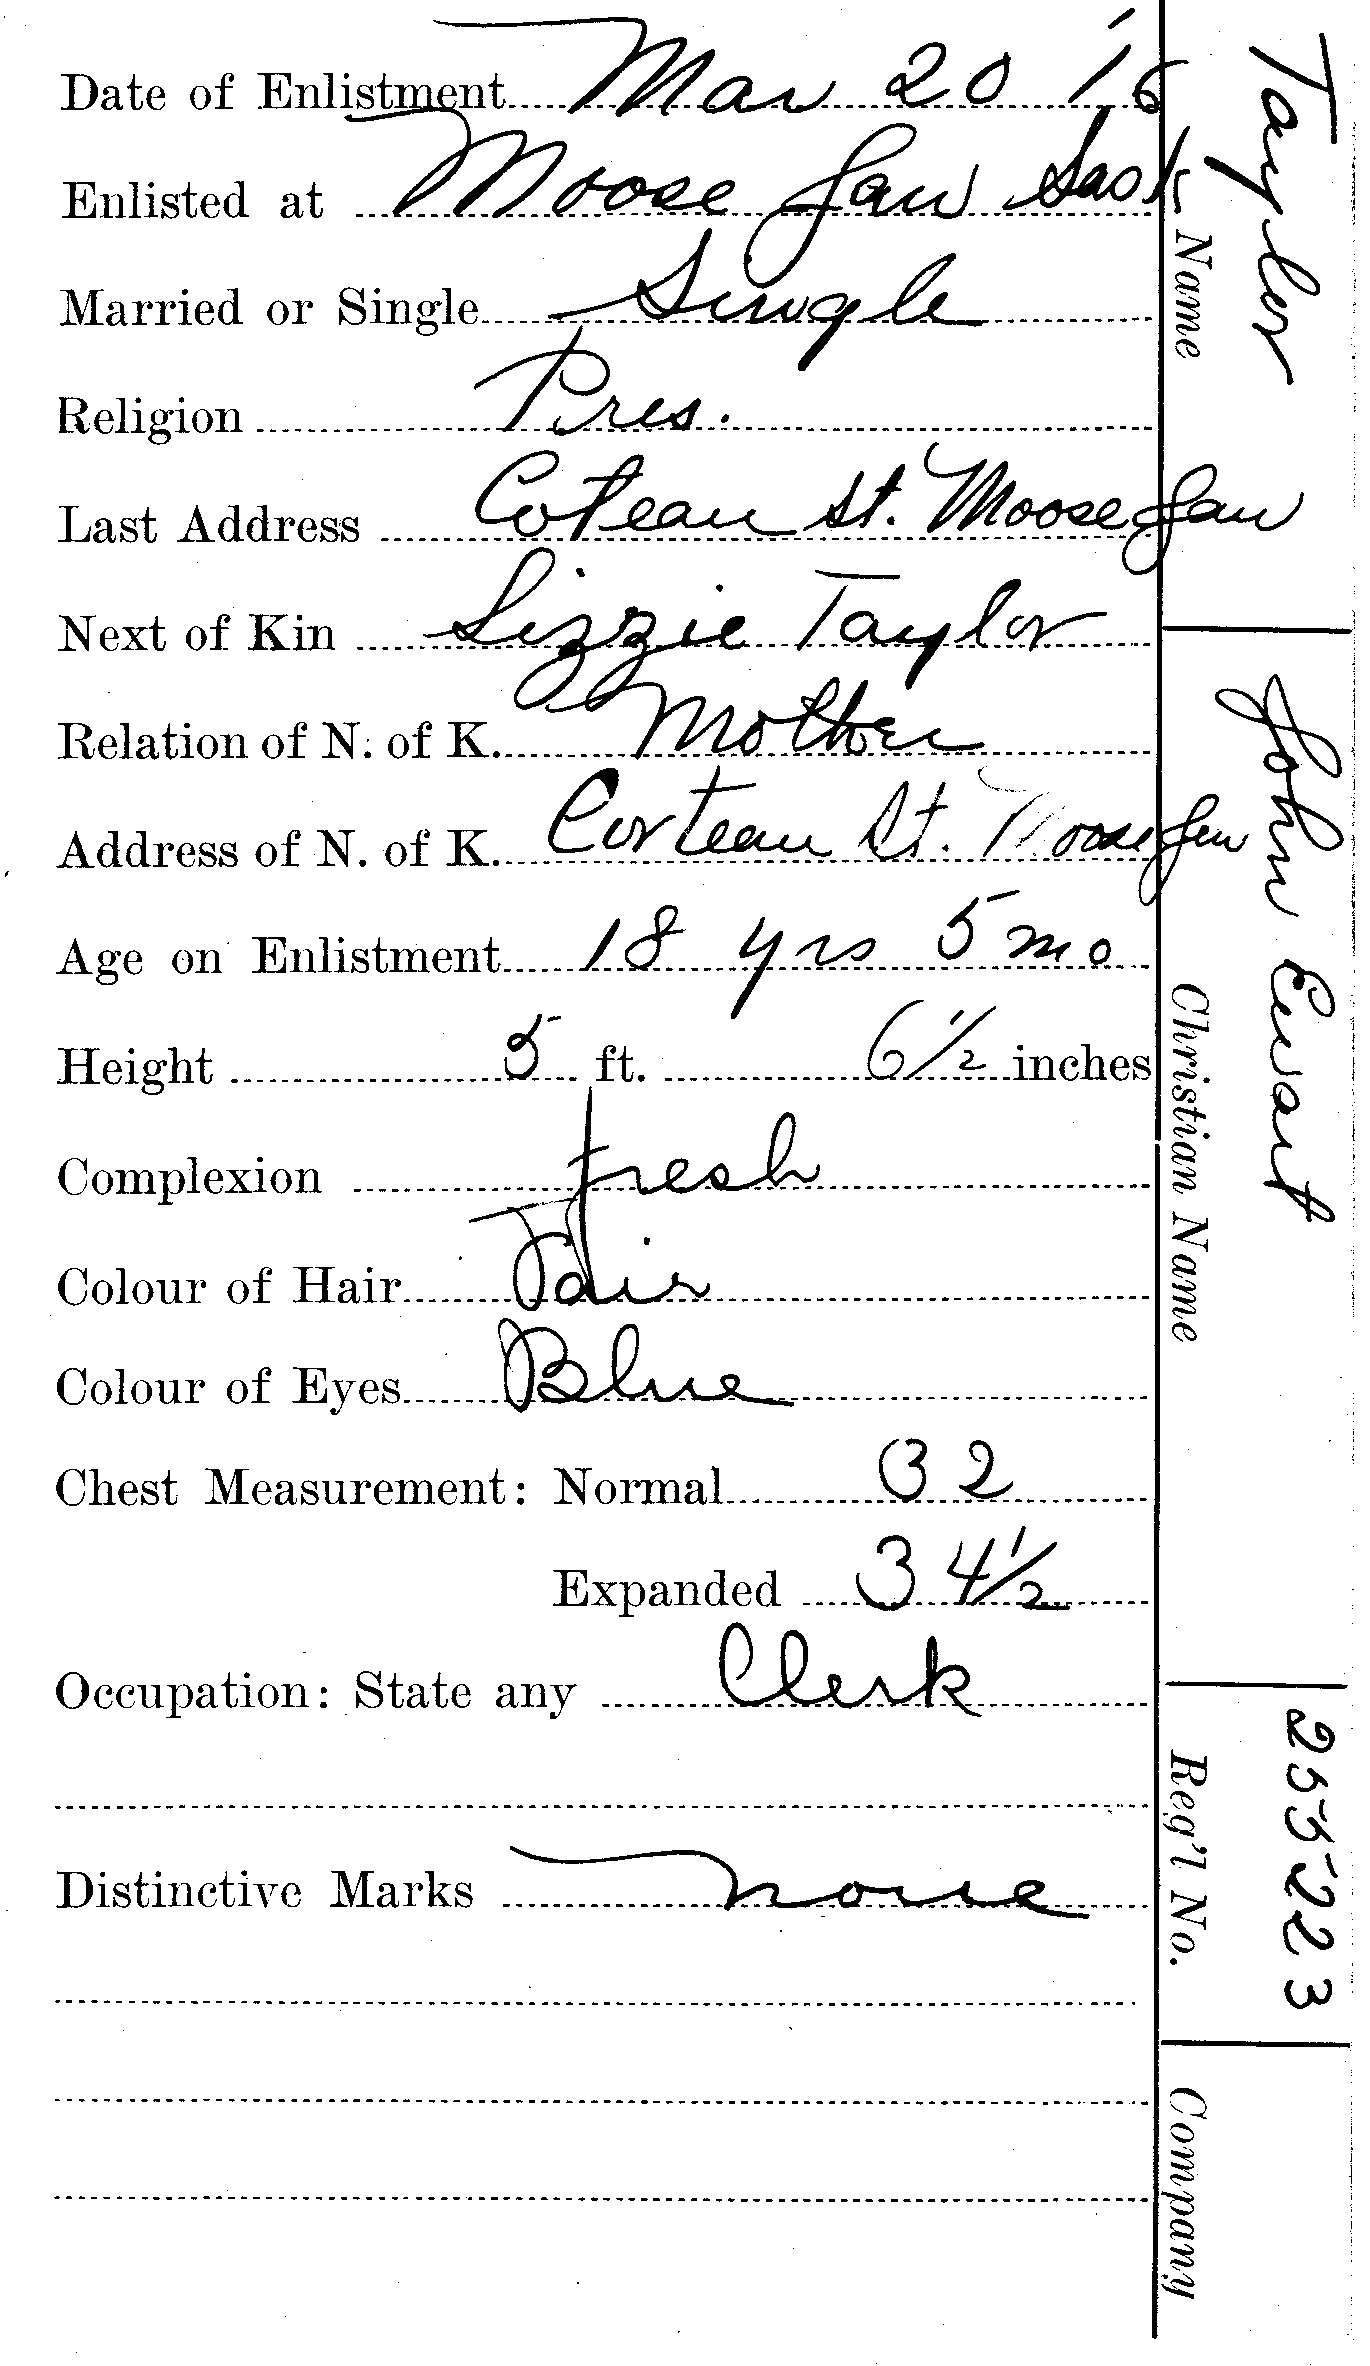 Date of Enlistment Mar 20 '16
Enlisted at Moose Jaw Sask
Married or Single Single
Religion Pres.
Last Address Coteau St. Moose Jaw
Next of Kin Lizzie Taylor
Relation of N. of K. Mother
Address of N. of K. Corteau St. Moose Jaw
Age on Enlistment 18 yrs 5 mo
Height 5 ft. 6 1/2 inches
Complexion fresh
Colour of Hair Fair
Colour of Eyes Blue
Chest Measurement: Normal 32
Expanded 34 1/2
Occupation: State any Clerk
Distinctive Marks none
Taylor
Name
John Ewart
Christian Name
255223
Reg'l No.
Company